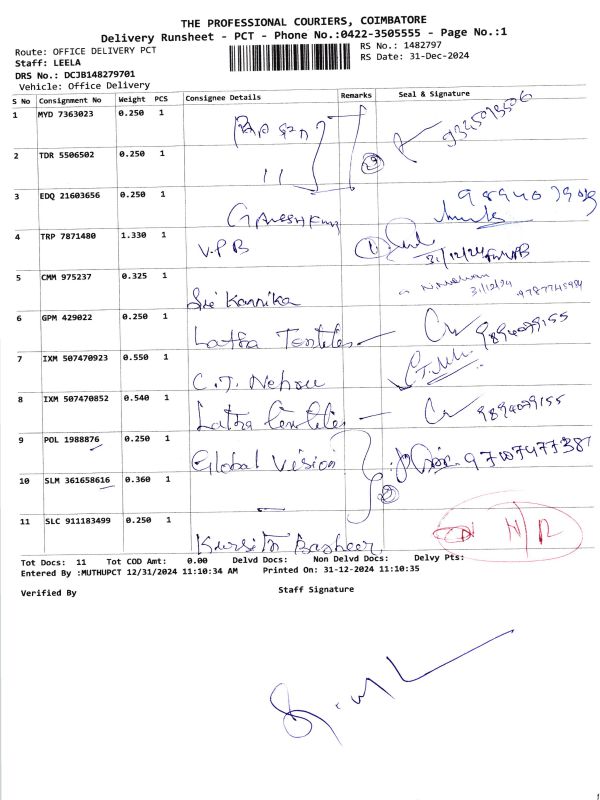 THE PROFESSIONAL COURIERS, COIMBATORE
Delivery Runsheet - PCT - Phone No.:0422-3505555 - Page No.:1
Route: OFFICE DELIVERY PCT
RS No.: 1482797
Staff: LEELA
RS Date: 31-Dec-2024
DRS No.: DCJB148279701
Vehicle: Office Delivery
S No Consignment No Weight PCS Consignee Details Remarks Seal & Signature
1 MYD 7363023 0.250 1
2 TDR 5506502 0.250 1 11
3 EDQ 21603656 0.250 1
4 TRP 7871480 1.330 1 V.P.B 31/12/24
5 CMM 975237 0.325 1 Sri Kannika 31/12/24
6 GPM 429022 0.250 1 9894079155
7 IXM 507470923 0.550 1 C.T. Nehru
8 IXM 507470852 0.540 1 9894079155
9 POL 1988876 0.250 1 Global Vision
10 SLM 361658616 0.360 1
11 SLC 911183499 0.250 1 N/R
Tot Docs: 11 Tot COD Amt: 0.00 Delvd Docs: Non Delvd Docs: Delvy Pts:
Entered By :MUTHUPCT 12/31/2024 11:10:34 AM Printed On: 31-12-2024 11:10:35
Verified By Staff Signature
1